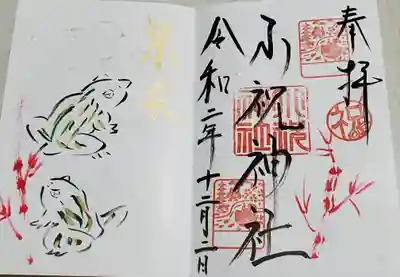 奉拝
祝
小祝神社
令和二年十二月二日